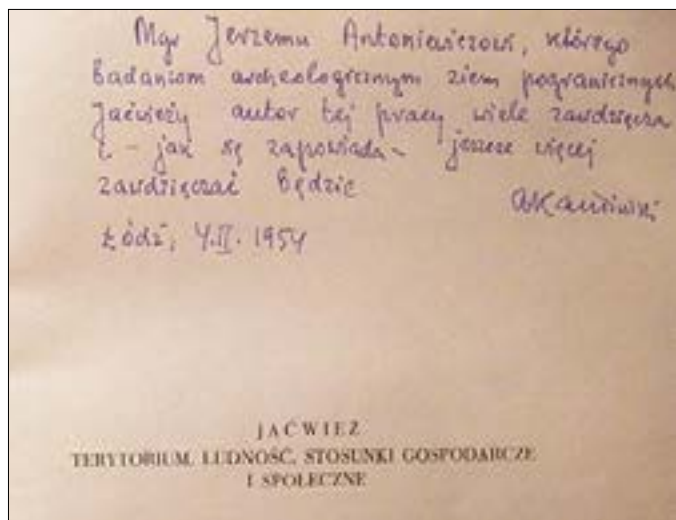 Mgr Jerzemu Antoniewiczowi, którego
badaniom archeologicznym ziem pogranicznych
Jaćwieży autor tej pracy wiele zawdzięcza
i - jak się zapowiada - jeszcze więcej
zawdzięczać będzie
AKamiński
Łódź, 4.II.1954
JAĆWIEŻ
TERYTORIUM, LUDNOŚĆ, STOSUNKI GOSPODARCZE
I SPOŁECZNE